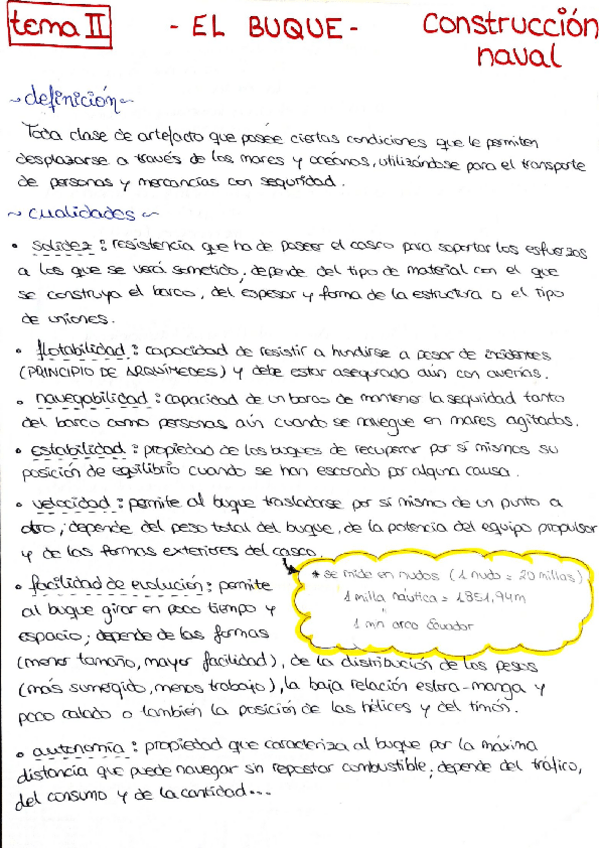 tema II - EL BUQUE - construcción
naval
~ definición ~
Toda clase de artefacto que posée ciertas condiciones que le permiten
desplazarse a través de los mares y océanos, utilizándose para el transporte
de personas y mercancías con seguridad.
~ cualidades ~
• solidez : resistencia que ha de poseer el casco para soportar los esfuerzos
a los que se verá sometido; depende del tipo de material con el que
se construya el barco, del espesor y forma de la estructura o el tipo
de uniones.
• flotabilidad : capacidad de resistir a hundirse a pesar de incidentes
(PRINCIPIO DE ARQUÍMEDES) y debe estar asegurada aún con averías.
• navegabilidad : capacidad de un barco de mantener la seguridad tanto
del barco como personas aún cuando se navegue en mares agitados.
• estabilidad : propiedad de los buques de recuperar por sí mismos su
posición de equilibrio cuando se han escorado por alguna causa.
• velocidad : permite al buque trasladarse por sí mismo de un punto a
otro ; depende del peso total del buque, de la potencia del equipo propulsor
y de las formas exteriores del casco.
* se mide en nudos (1 nudo = 20 millas)
1 milla náutica = 1851,94m
"
1 mn arco Ecuador
• facilidad de evolución : permite
al buque girar en poco tiempo y
espacio; depende de las formas
(menor tamaño, mayor facilidad), de la distribución de los pesos
(más sumergido, menos trabajo), la baja relación eslora-manga y
poco calado o también la posición de las hélices y del timón.
• autonomía : propiedad que caracteriza al buque por la máxima
distancia que puede navegar sin repostar combustible; depende del tráfico,
del consumo y de la cantidad...